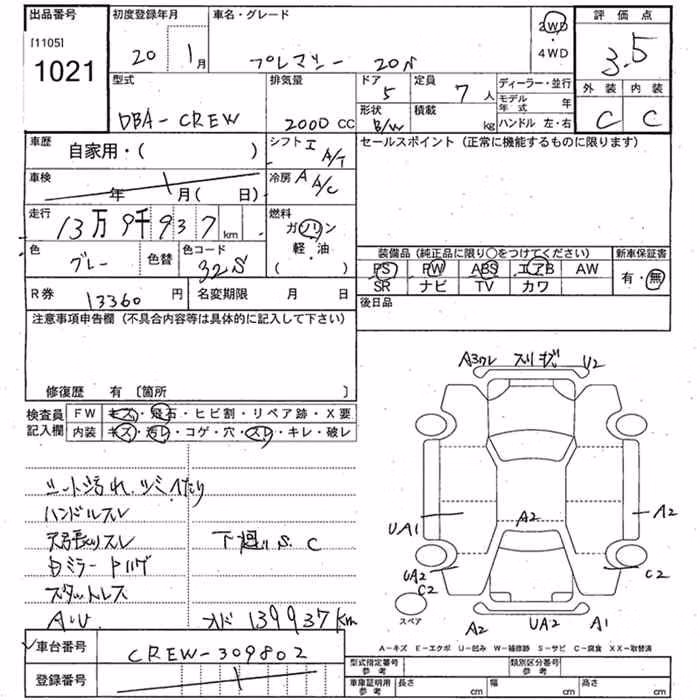 出品番号 初度登録年月 車名・グレード 評価点
[1105]
1021
20 1月 プレマシー 20S 2WD ・ 4WD 3.5
外装 内装
C C
型式 排気量 ドア 定員 ディーラー・並行
DBA-CREW 2000 CC 5 7人 モデル年式 年
形状 積載 ハンドル 左・右
B/W kg
車歴 自家用・( ) シフト I A/T セールスポイント (正常に機能するものに限ります)
車検 年 月( 日) 冷房 A A/C
走行 13万9千937km 燃料 ガソリン・軽・油 ( )
色 グレー 色替 色コード 32S
装備品 (純正品に限り○をつけてください) 新車保証書
PS PW ABS エアB AW 有・無
SR ナビ TV カワ
R券 13360円 名変期限 月 日 後日品
注意事項申告欄 (不具合内容等は具体的に記入して下さい)
修復歴 有 〔箇所 〕
検査員記入欄 FW キズ・飛石・ヒビ割・リペア跡・X要
内装 キズ・汚レ・コゲ・穴・スレ・キレ・破レ
シート汚れ
ハンドルスレ
天張りスレ 下廻り S.C
スタットレス
オド 139937km
A3ワレ スリキズ U2
UA1 A2 A2
UA2 C2 C2
スペア A2 UA2 A1
A-キズ E-エクボ U-凹み W-補修跡 S-サビ C-腐食 XX-取替済
車台番号 CREW-309802
登録番号
型式指定番号 参考 類別区分番号 参考
車庫証明用 参考 長さ cm 幅 cm 高さ cm